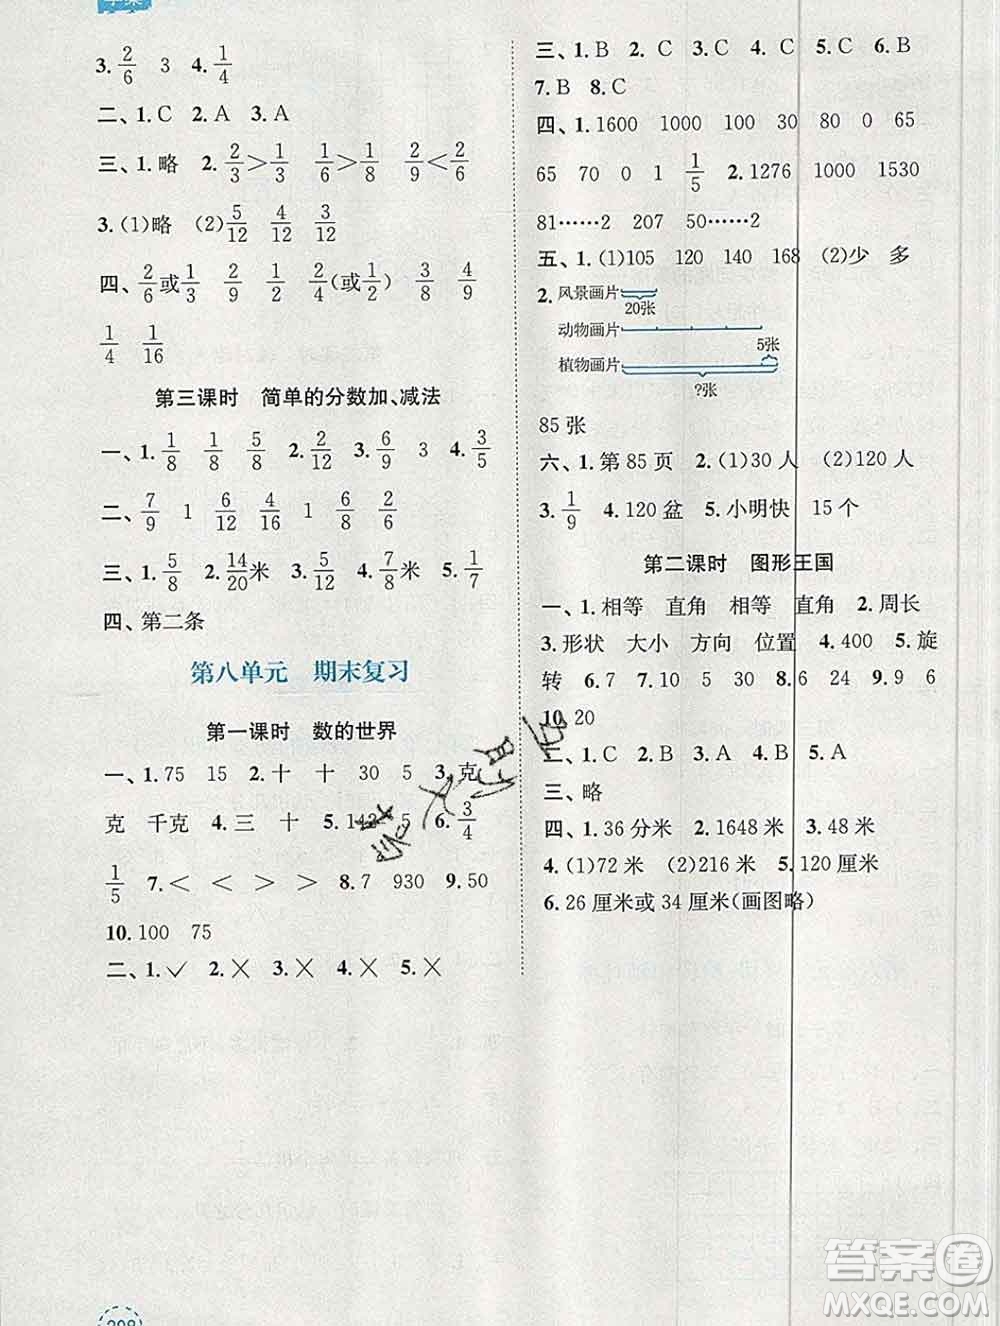 3. 2/6 3 4. 1/4
二、1. C 2. A 3. A
三、1. 略 2. 2/3>1/3 1/6>1/8 2/9<2/6
3. (1)略 (2)5/12 4/12 3/12
四、2/6或1/3 2/9 1/2 2/4(或1/2) 2/6 4/9
1/4 1/16
第三课时 简单的分数加、减法
一、1. 1/8 1/8 5/8 2. 2/12 3. 6/9 3 4. 3/5
二、7/9 1 6/12 4/16 1 6/8 2/6
三、1. 5/8 2. 14/20米 3. 5/10 4. 7/8米 5. 1/7
四、第二条
第八单元 期末复习
第一课时 数的世界
一、1. 75 15 2. 十 十 30 5 3. 克
克 千克 4. 三 十 5. 5 6. 3/4
1/5 7. < < > > 8. 7 930 9. 50
10. 100 75
二、1. ✓ 2. × 3. × 4. × 5. ×
三、1. B 2. C 3. C 4. C 5. C 6. B
7. B 8. C
四、1. 1600 1000 100 30 80 0 65
65 70 0 1 1/5 2. 1276 1000 1530
81……2 207 50……2
五、1. (1)105 120 140 168 (2)少 多
2. 风景画片
20张
动物画片
5张
植物画片
?张
85 张
六、1. 第 85 页 2. (1)30 人 (2)120 人
3. 1/9 4. 120 盆 5. 小明快 15 个
第二课时 图形王国
一、1. 相等 直角 相等 直角 2. 周长
3. 形状 大小 方向 位置 4. 400 5. 旋
转 6. 7 7. 10 8. 6 24 9. 9 6
10. 20
二、1. C 2. B 3. A 4. B 5. A
三、略
四、1. 36 分米 2. 1648 米 3. 48 米
4. (1)72 米 (2)216 米 5. 120 厘米
6. 26 厘米或 34 厘米(画图略)
答案圈
MXQE.COM